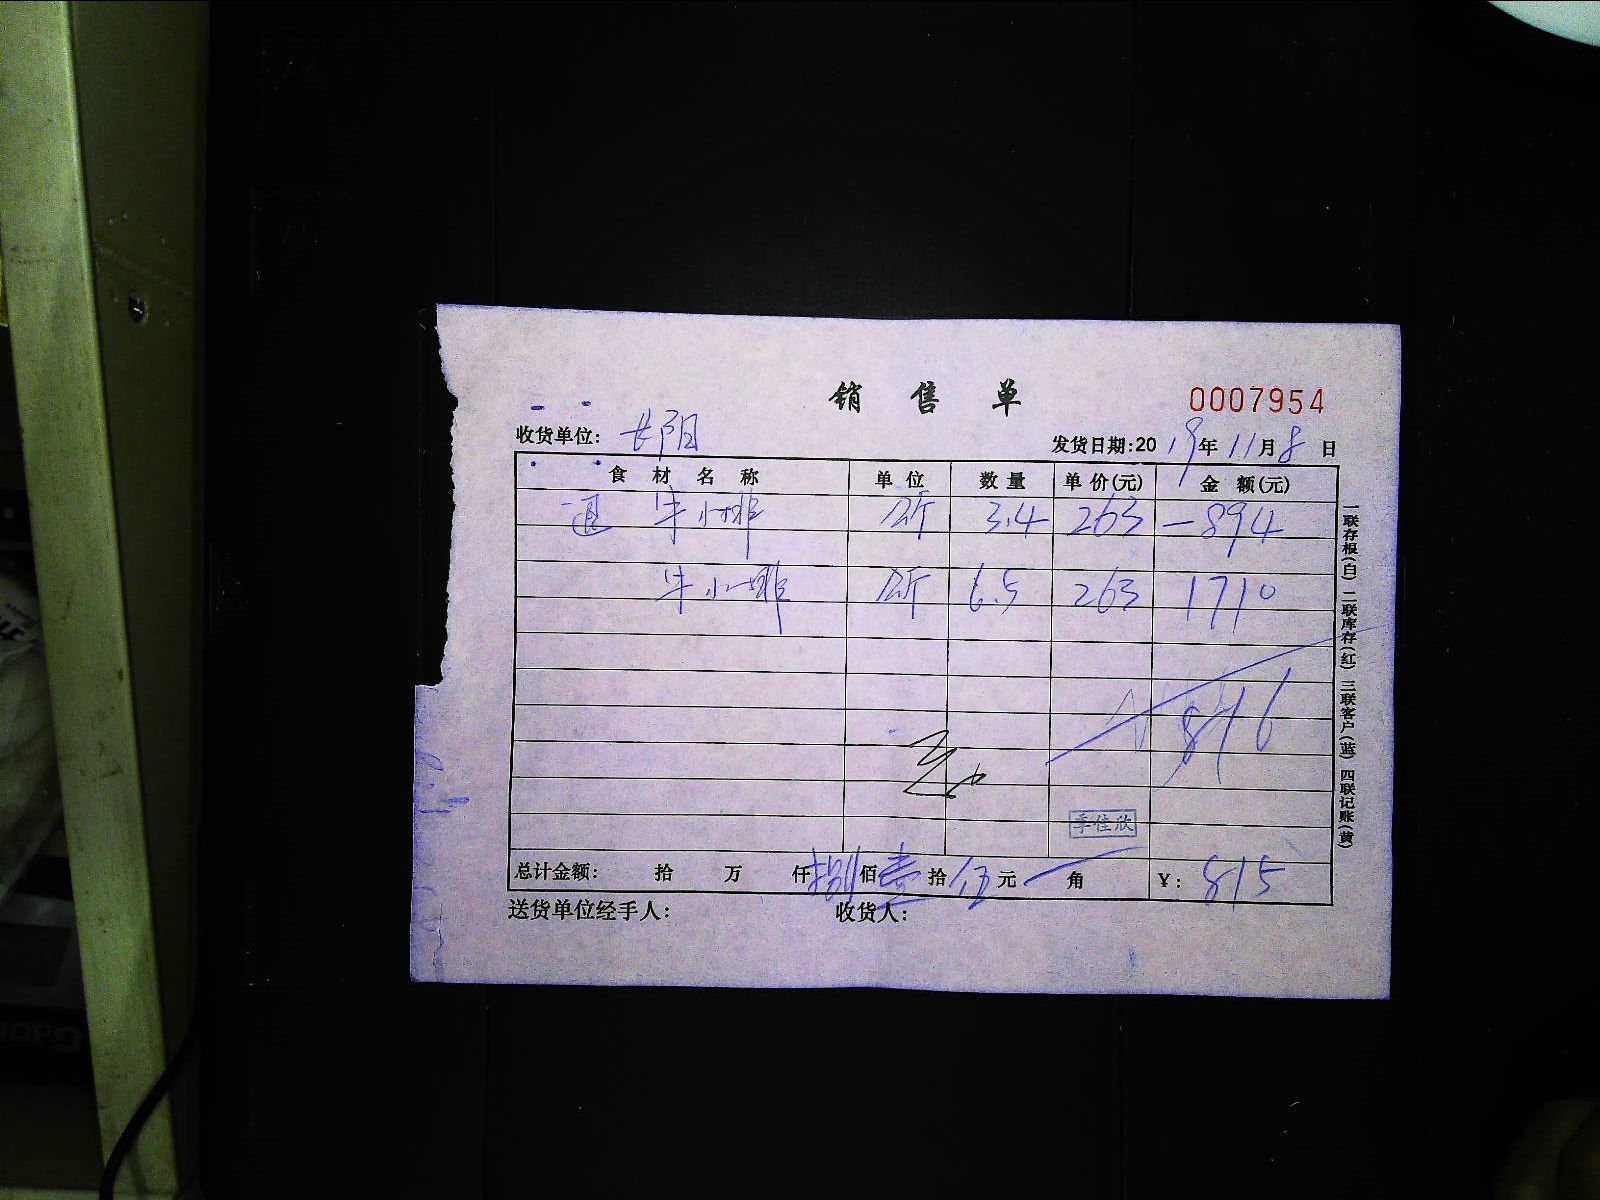 销 售 单
0007954
收货单位: 长阳
发货日期:2019年11月8日
食 材 名 称 单 位 数 量 单 价(元) 金 额(元)
退 牛小排 公斤 3.4 263 -894
牛小排 公斤 6.5 263 1710
816
李佳欣
总计金额: 拾 万 仟 捌 佰 壹 拾 伍 元 角 ¥: 815
送货单位经手人: 收货人:
一联存根(白) 二联库存(红) 三联客户(蓝) 四联记账(黄)